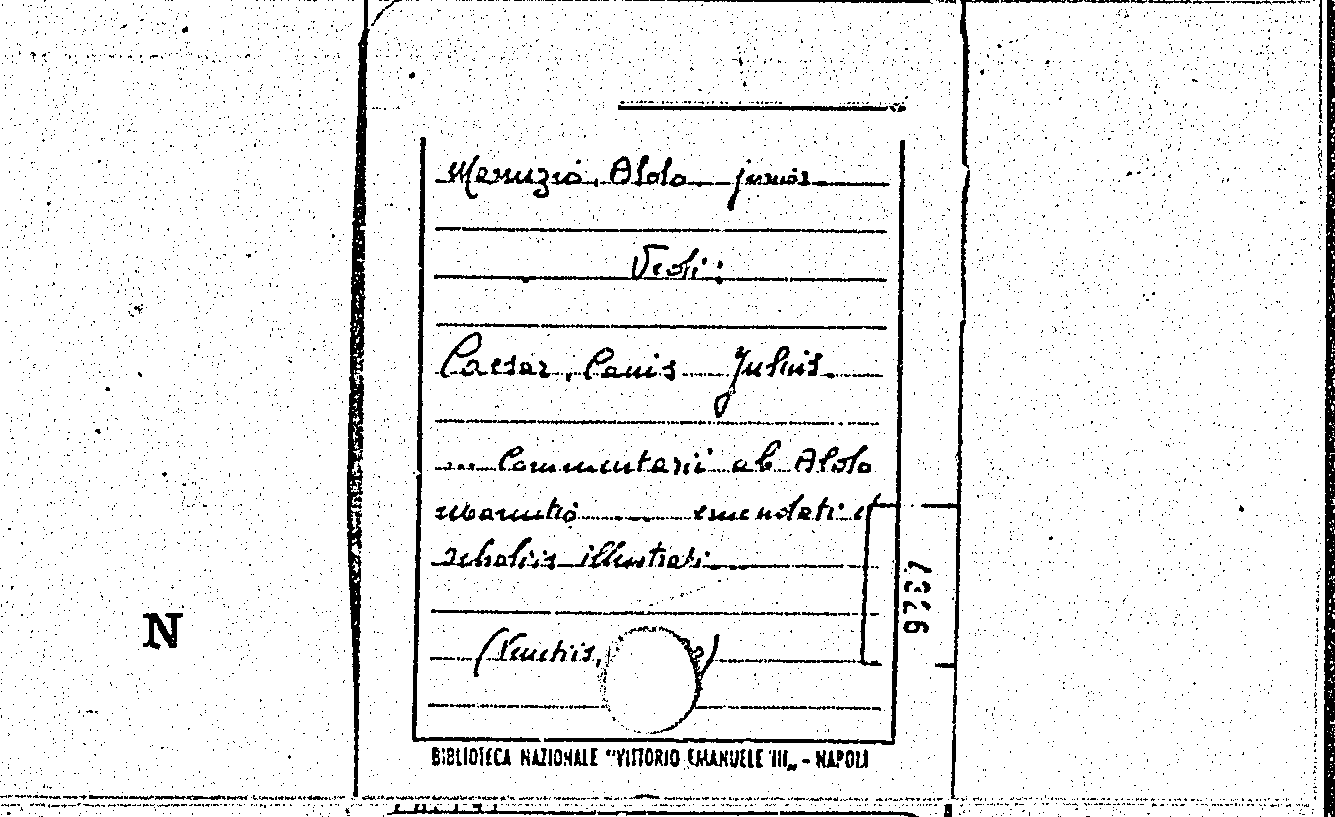 Manuzio, Aldo junior
Vedi:
Caesar, Caius Julius
... Commentarii ab Aldo
Manutio ...... emendati et
scholiis illustrati
(Venetiis,
N
BIBLIOTECA NAZIONALE "VITTORIO EMANUELE III" - NAPOLI